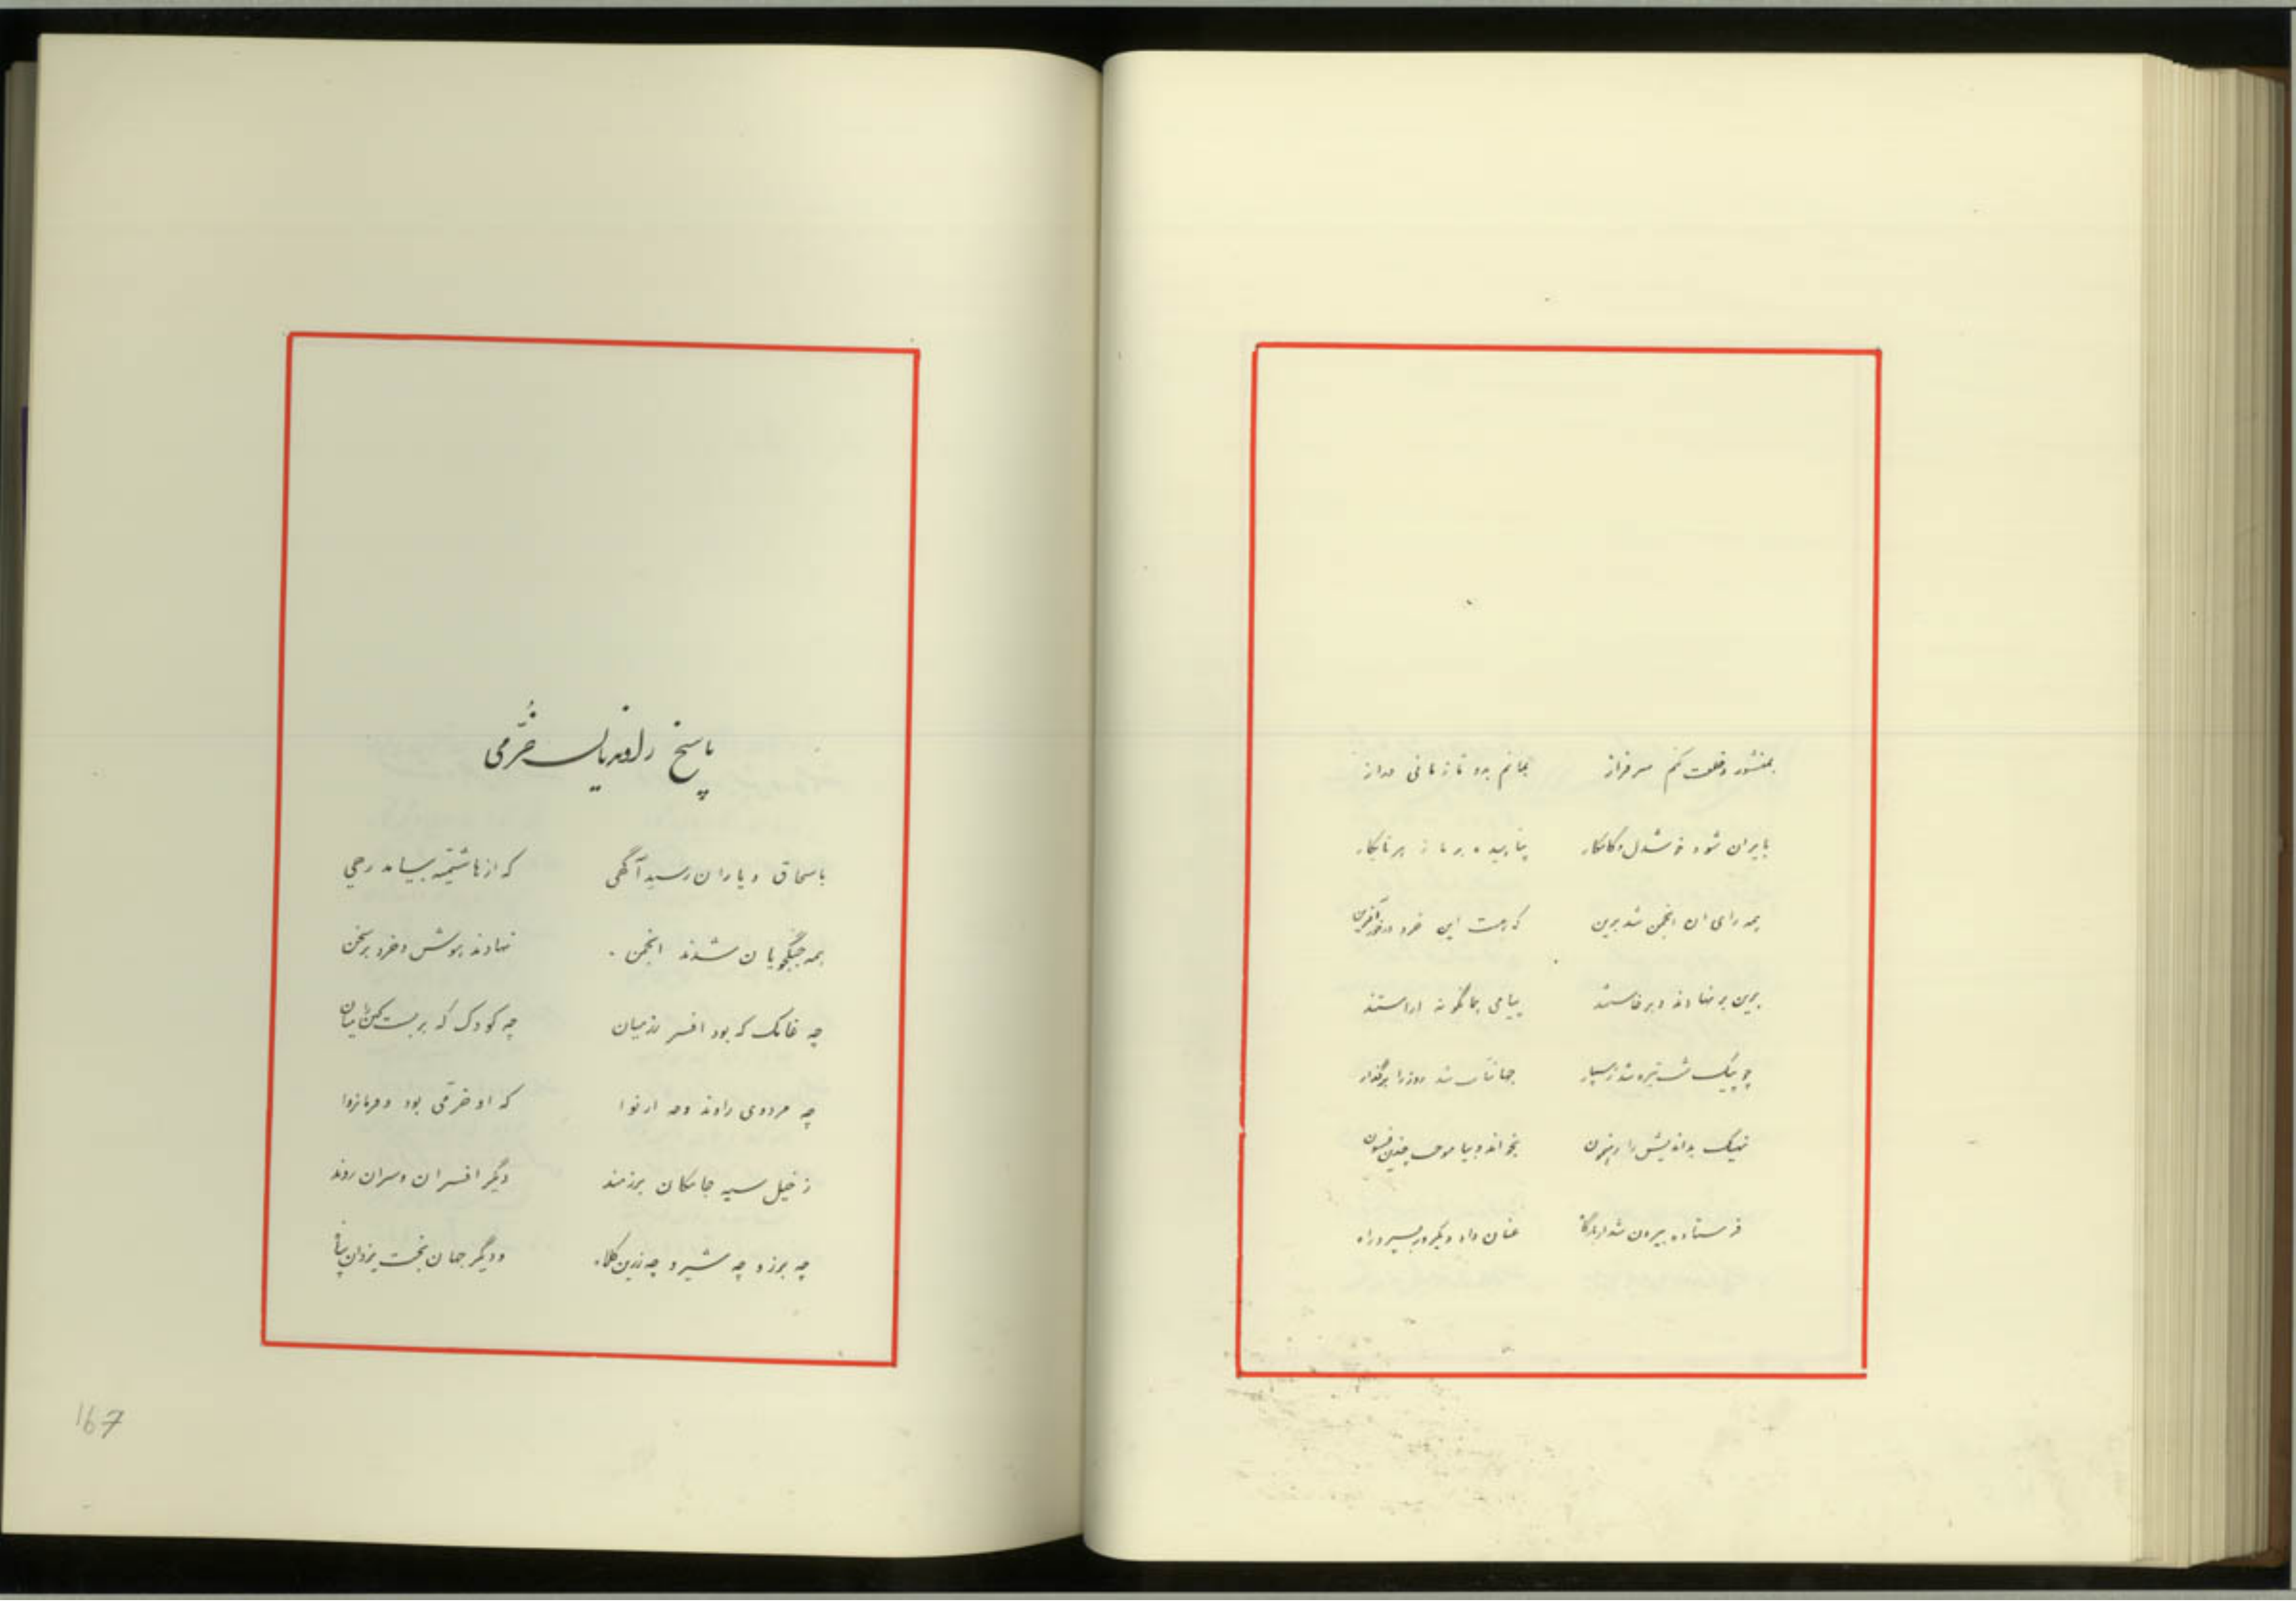 بمنشور و خلعت کنم سرفراز بمانم بدو تا زمانی دراز
بایران شود خوشدل و کامکار
همه رای ان انجمن شد برین که هست این خرد درخور آفرین
برین بر نهادند و برخاستند پیامی بدانگونه اراستند
چو پیک شب تیره شد رهسپار جهانتاب شد روز را
بداندیش را رهنمون بخواند و بیاموخت چندین فسون
فرستاده بیرون شد از بارگاه عنان داد و یکرو بسپرد راه
پاسخ راوندیان خُرّمی
باسحاق و یاران رسید آگهی که از هاشمیّه بیامد رهی
همه جنگجویان شدند انجمن نهادند هوش و خرد بر سخن
چه غانک که بود افسر رزمیان چه کودک که بربست کین را میان
چه مردوی راوند وچه ارنوا که او خرّمی بود و فرمانروا
ز خیل سیه جامکان برزمند دیگر افسران و سران روند
چه برزو چه شیرو چه زرین کلاه و دیگر جهان بخت یزدان پناه
167